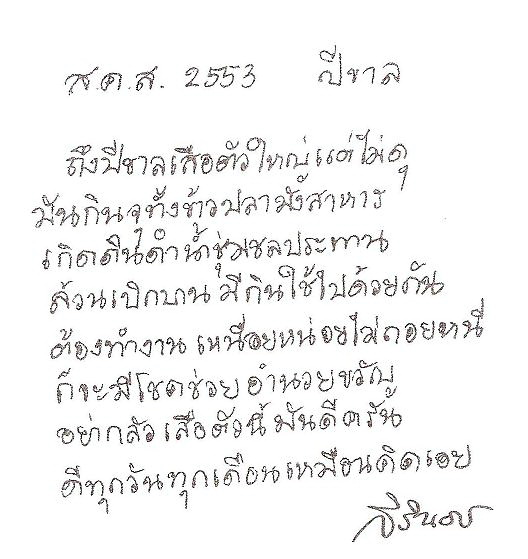 ส.ค.ส. 2553 ปีขาล
ถึงปีขาลเสือตัวใหญ่แต่ไม่ดุ
มันกินจุทั้งข้าวปลามังสาหาร
เกิดดินดำน้ำชุ่มชลประทาน
ล้วนเบิกบาน มีกินใช้ไปด้วยกัน
ต้องทำงาน เหนื่อยหน่อยไม่ถอยหนี
ก็จะมีโชคช่วย อำนวยขวัญ
อย่ากลัวเสือตัวนี้มันดีครัน
ดีทุกวันทุกเดือนเหมือนคิดเอย
สิรินธร